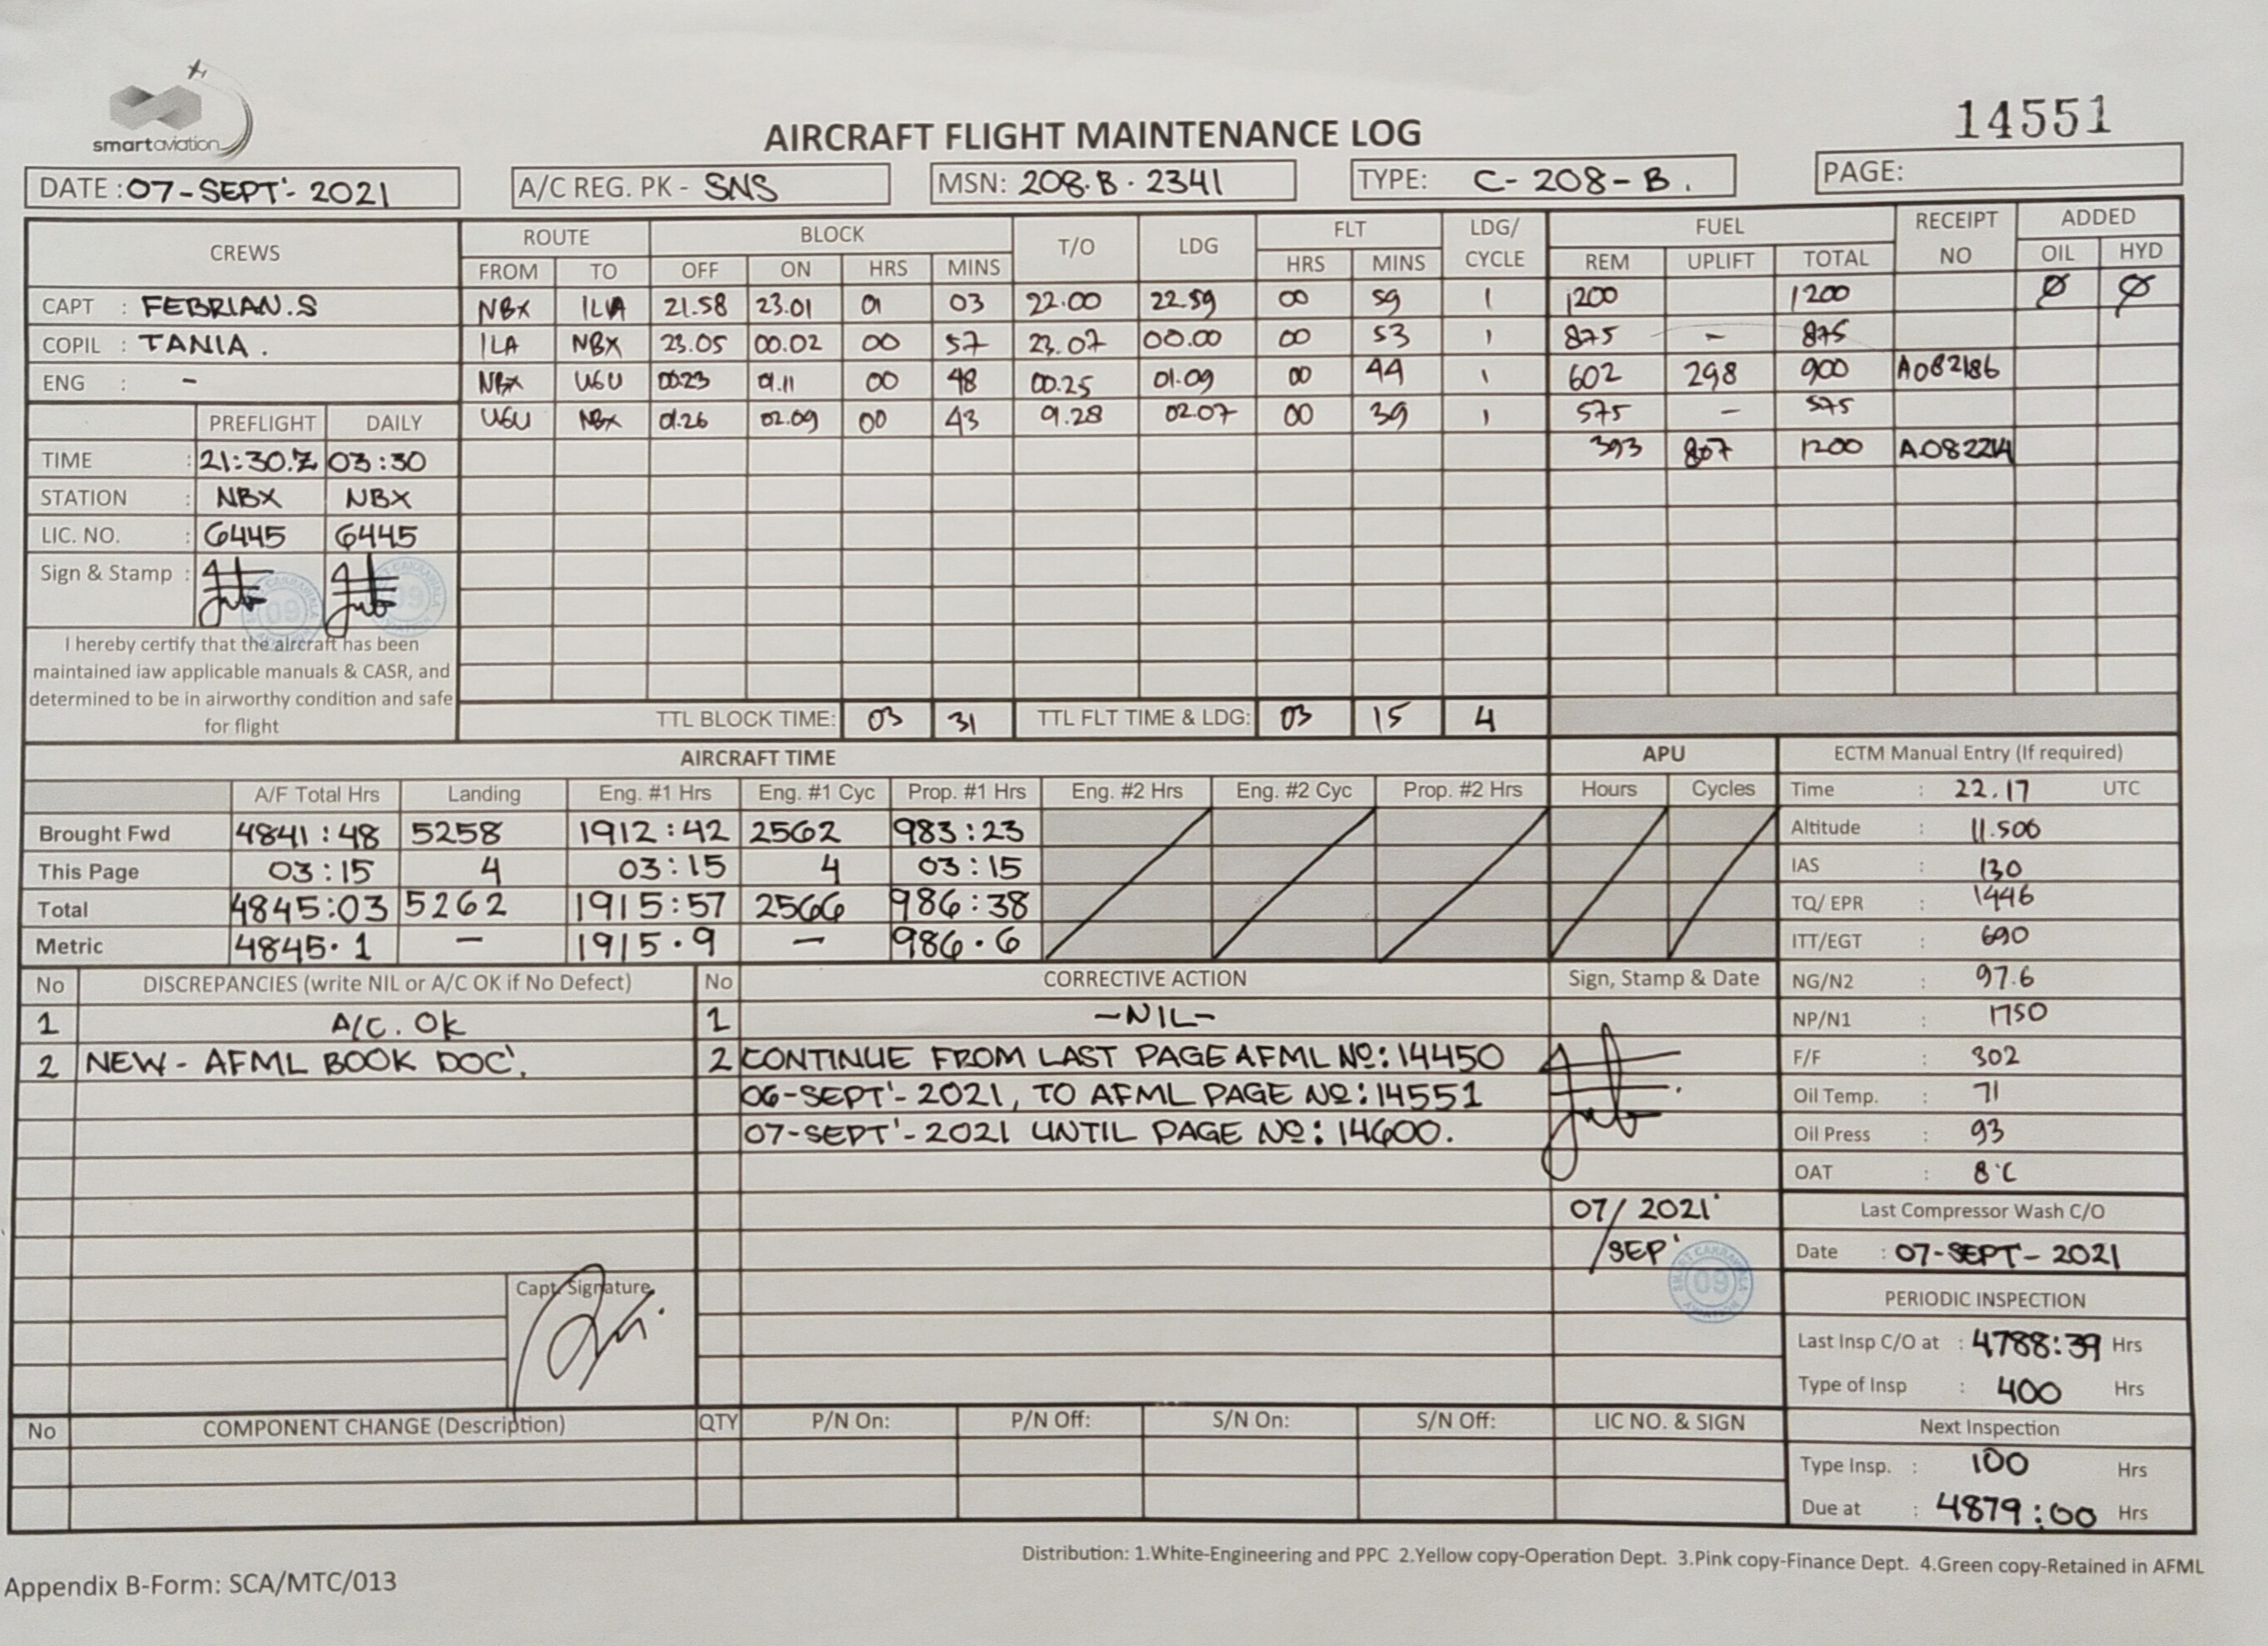 smartaviation
AIRCRAFT FLIGHT MAINTENANCE LOG
14551
DATE : 07-SEPT'- 2021 A/C REG. PK - SNS MSN: 208.B.2341 TYPE: C-208-B. PAGE:
CREWS ROUTE BLOCK T/O LDG FLT LDG/ CYCLE FUEL RECEIPT NO ADDED
FROM TO OFF ON HRS MINS HRS MINS REM UPLIFT TOTAL OIL HYD
CAPT : FEBRIAN.S NBX ILA 21.58 23.01 01 03 22.00 22.59 00 59 1 1200 1200 Ø Ø
COPIL : TANIA. ILA NBX 23.05 00.02 00 57 23.07 00.00 00 53 1 875 - 875
ENG : - NBX UGU 00.23 01.11 00 48 00.25 01.09 00 44 1 602 298 900 A082186
PREFLIGHT DAILY UGU NBX 01.26 02.09 00 43 01.28 02.07 00 39 1 575 - 575
TIME : 21:30.Z 03:30 393 807 1200 A082214
STATION : NBX NBX
LIC. NO. : 6445 6445
Sign & Stamp :
I hereby certify that the aircraft has been
maintained iaw applicable manuals & CASR, and
determined to be in airworthy condition and safe
for flight
TTL BLOCK TIME: 03 31 TTL FLT TIME & LDG: 03 15 4
AIRCRAFT TIME APU ECTM Manual Entry (If required)
A/F Total Hrs Landing Eng. #1 Hrs Eng. #1 Cyc Prop. #1 Hrs Eng. #2 Hrs Eng. #2 Cyc Prop. #2 Hrs Hours Cycles Time : 22.17 UTC
Brought Fwd 4841:48 5258 1912:42 2562 983:23 Altitude : 11.506
This Page 03:15 4 03:15 4 03:15 IAS : 130
Total 4845:03 5262 1915:57 2566 986:38 TQ/ EPR : 1446
Metric 4845.1 - 1915.9 - 986.6 ITT/EGT : 690
No DISCREPANCIES (write NIL or A/C OK if No Defect) No CORRECTIVE ACTION Sign, Stamp & Date NG/N2 : 97.6
1 A/C. OK 1 -NIL- NP/N1 : 1750
2 NEW - AFML BOOK DOC'. 2 CONTINUE FROM LAST PAGE AFML Nº: 14450 F/F : 302
06-SEPT'-2021, TO AFML PAGE Nº: 14551 Oil Temp. : 71
07-SEPT'-2021 UNTIL PAGE Nº: 14600. Oil Press : 93
OAT : 8°C
07/ 2021' Last Compressor Wash C/O
/SEP' Date : 07-SEPT-2021
SMART CAKRAWALA AVIATION 09
Capt. Signature
PERIODIC INSPECTION
Last Insp C/O at : 4788:39 Hrs
Type of Insp : 400 Hrs
No COMPONENT CHANGE (Description) QTY P/N On: P/N Off: S/N On: S/N Off: LIC NO. & SIGN Next Inspection
Type Insp. : 100 Hrs
Due at : 4879:00 Hrs
Distribution: 1.White-Engineering and PPC 2.Yellow copy-Operation Dept. 3.Pink copy-Finance Dept. 4.Green copy-Retained in AFML
Appendix B-Form: SCA/MTC/013